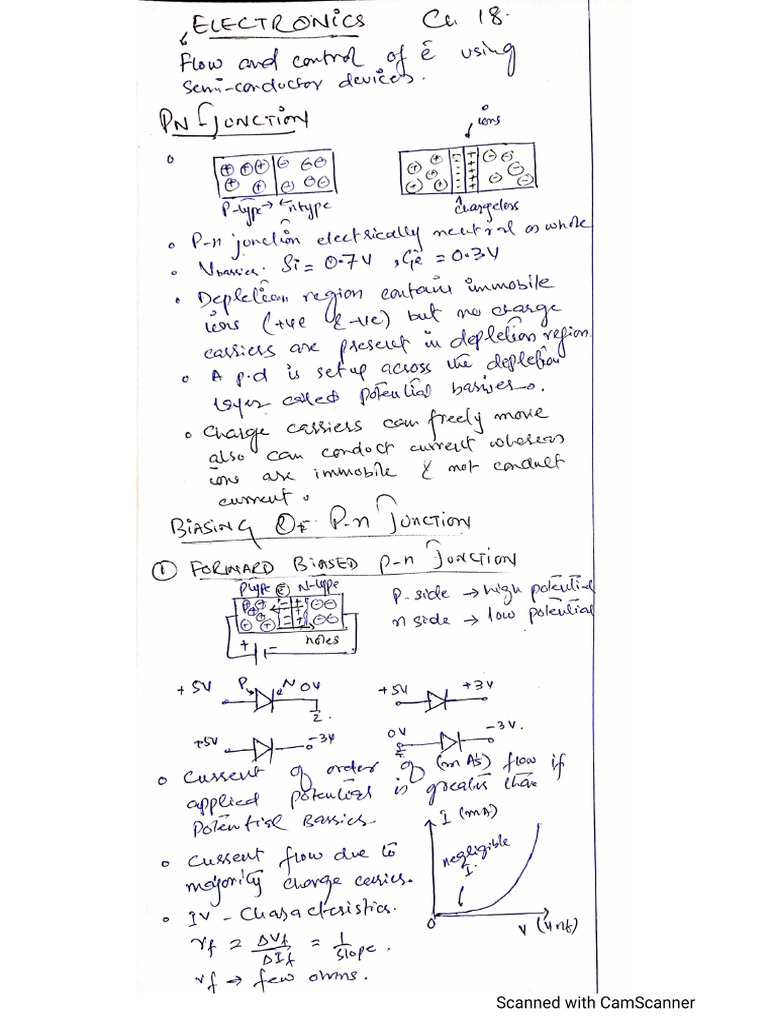 ELECTRONICS Ch 18.
Flow and control of ē using
semi-conductor devices.
PN-JUNCTION
ions
P-type n-type
chargeless
P-n junction electrically neutral as whole
Vbarrier. Si = 0.7V , Ge = 0.3V
Depletion region contains immobile
ions (+ve & -ve) but no charge
carriers are present in depletion region
A p.d is setup across the depletion
layer called potential barrier.
Charge carriers can freely move
also can conduct current whereas
ions are immobile & not conduct
current.
BIASING OF P-n JUNCTION
① FORWARD BIASED p-n JUNCTION
P type ē N-type
holes
+ -
P-side → high potential
n side → low potential
+5V P N 0V
+5V +3V
+5V -3V
0V -3V.
Current of order of (mA's) flow if
applied potential is greater than
Potential Barrier.
Current flow due to
majority charge carrier.
IV - Characteristics.
rf = ΔVf/ΔIf = 1/slope.
rf → few ohms.
I (mA)
negligible
I.
0
V (Volt)
Scanned with CamScanner